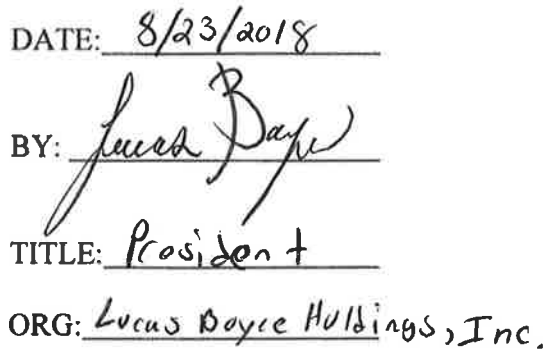 DATE: 8/23/2018
BY: Lucas Boyce
TITLE: President
ORG: Lucas Boyce Holdings, Inc.